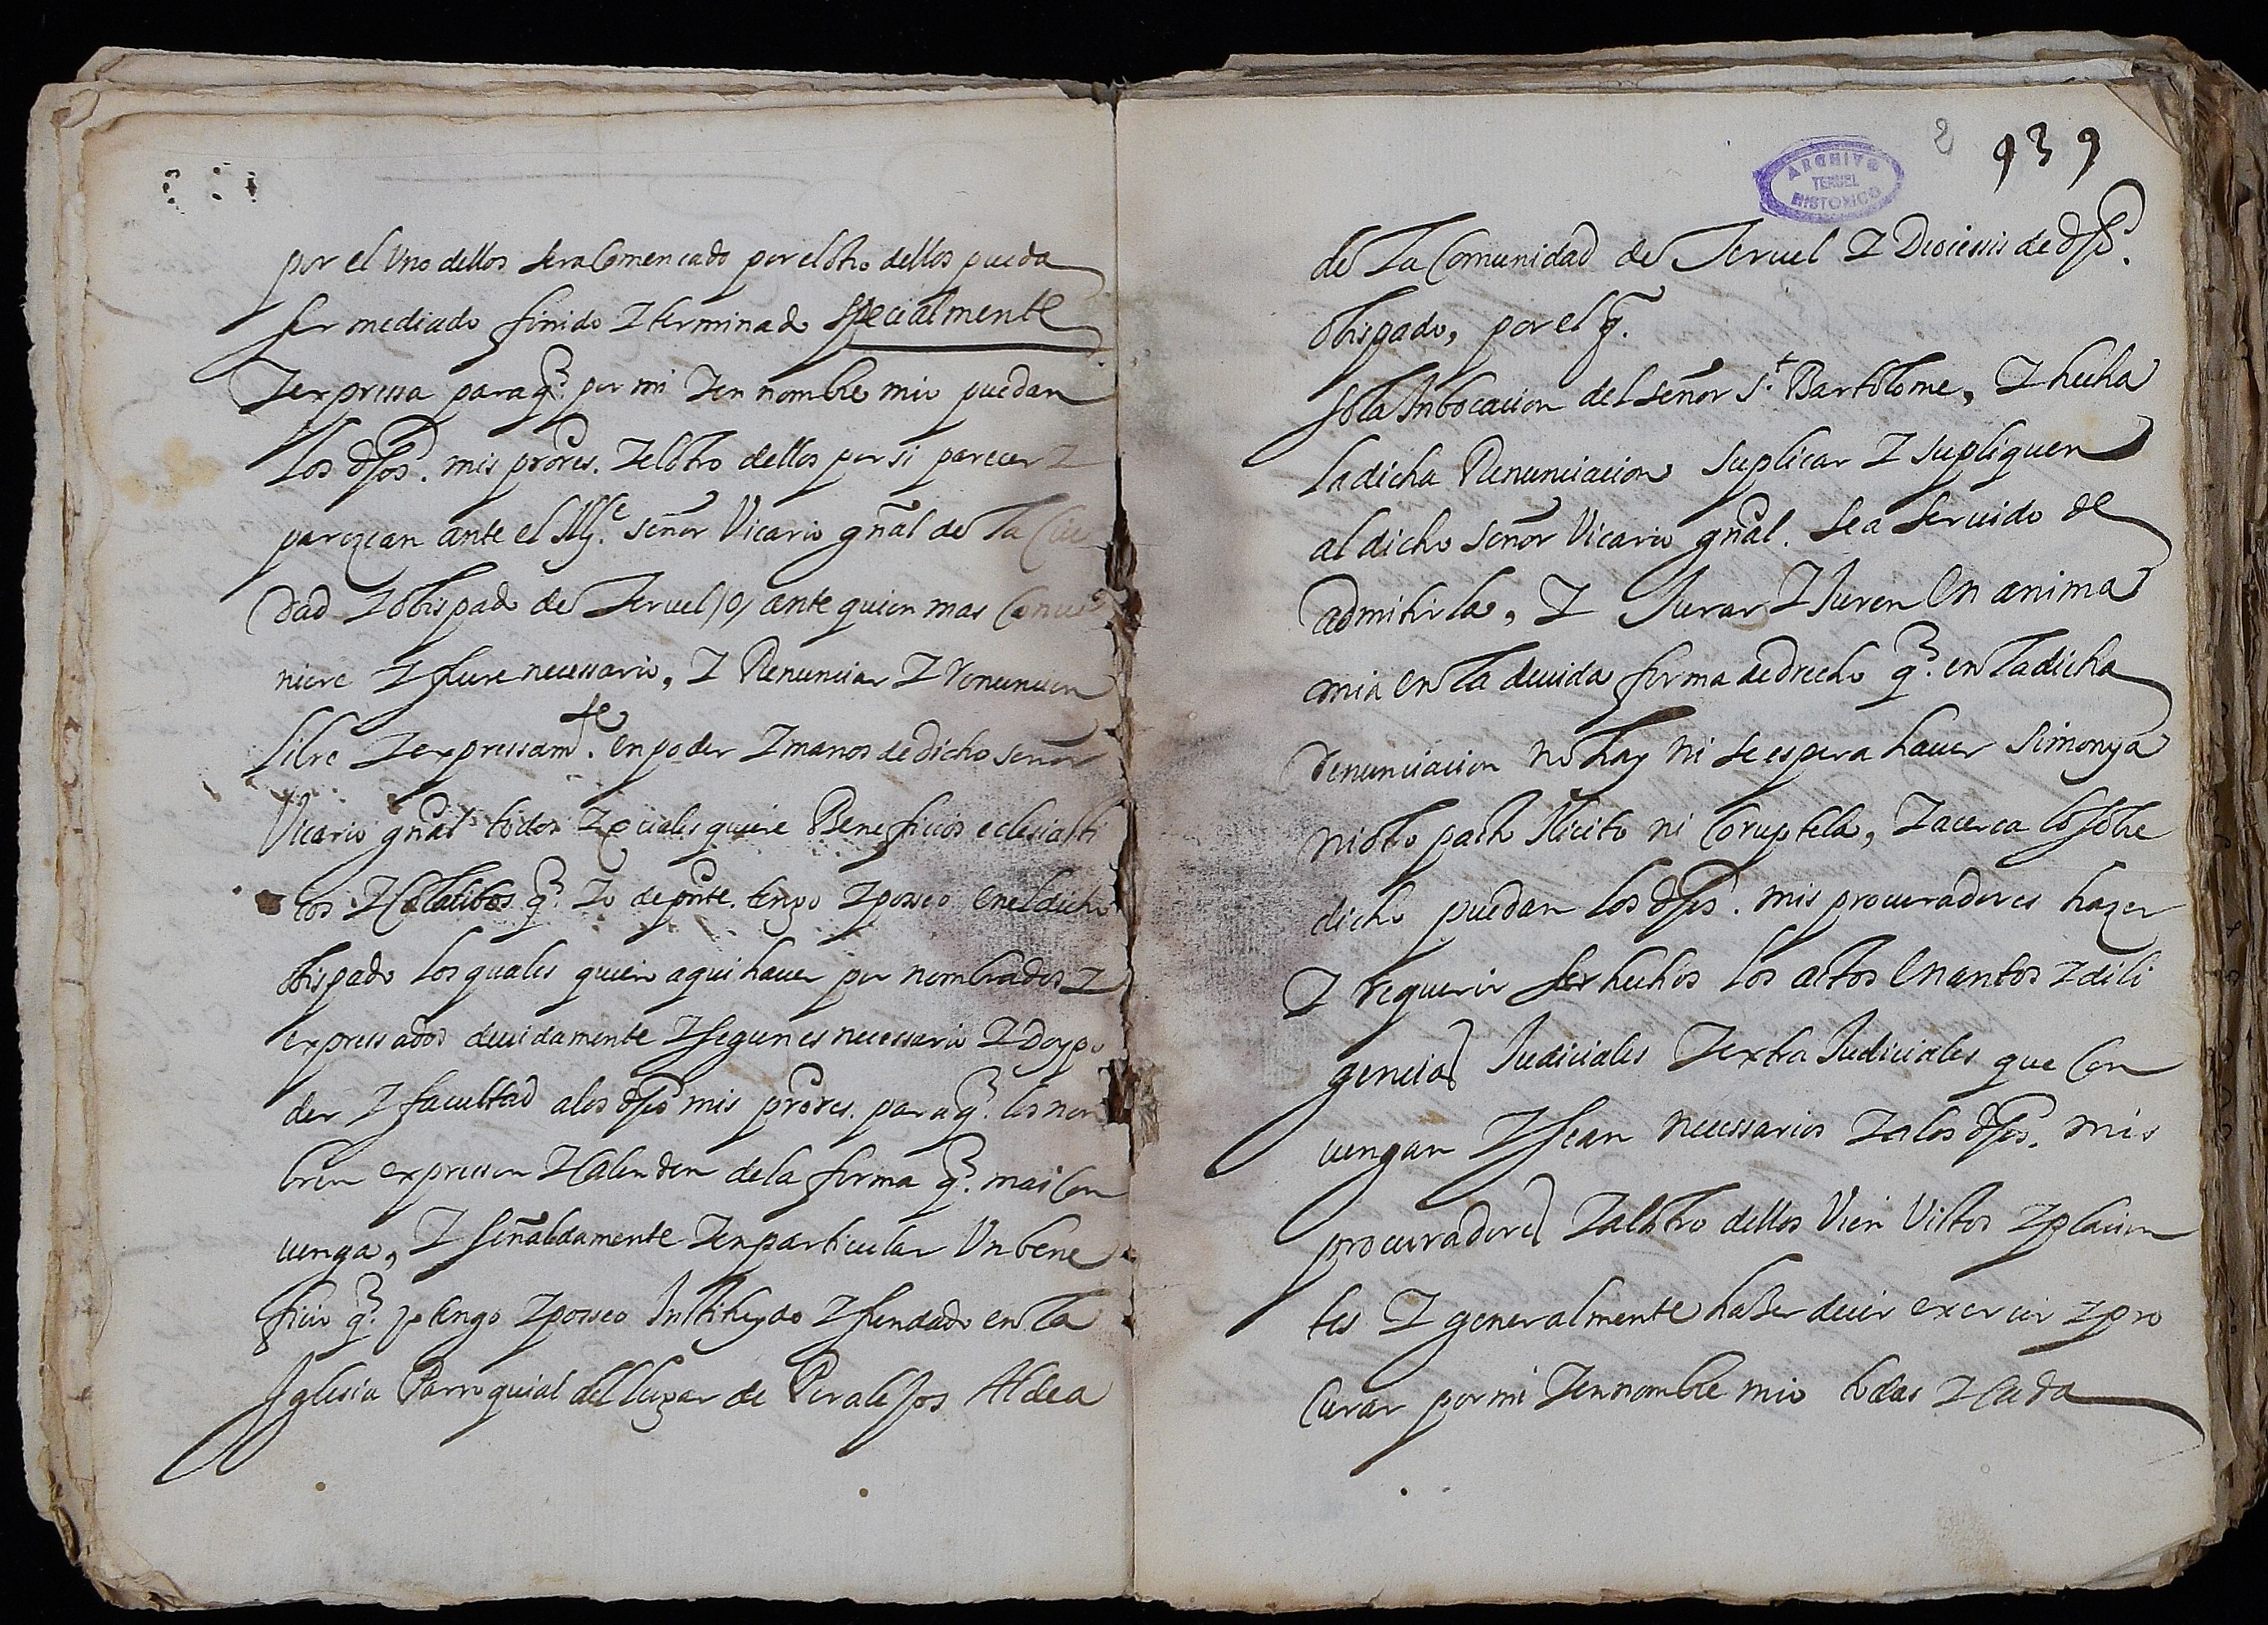 por el Uno dellos sera Comencado por el otro dellos pueda
ser mediado finido Z terminado specialmente
Z expressa para q̃. por mi Z en nombre mio puedan
los dhõs. mis prõres. Z el otro dellos por si parecer Z
parezcan ante el Illẽ. señor Vicario gñal de la Ciu
dad Z obispado de Teruel /o/ ante quien mas Conui
niere Z fuere necessario, Z Renunciar Z renuncien
libre Z expressamte. en poder Z manos de dicho señor
Vicario gñal todos Z qualesquiere Beneficios eclesiasti
cos Z Colatibos q̃. Yo de pñte. tengo Z posseo en el dicho
obispado los quales quiero aqui hauer por nombrados Z
expressados deuidamente Z segun es necessario Z Doy po
der Z facultad a los dhõs mis prõres. para q̃. los nom
bren expressen Z Calenden de la forma q̃. mas Con
uenga, Z señaldamente Z en particular Un bene
ficio q̃. yo tengo Z posseo Instituydo Z fundado en la
Iglesia Parroquial del lugar de Peralejos Aldea
2 939
ARCHIVO
TERUEL
HISTORICO
de la Comunidad de Teruel Z Diocesis de dhõ.
obispado, por el q̃.
so la Inbocacion del señor St. Bartolome, Z hecha
la dicha Renunciacion suplicar Z supliquen
al dicho señor Vicario gñal. sea seruido de
admitirla, Z Jurar Z Juren en anima
mia en la deuida forma de drecho q̃. en la dicha
renunciacion no hay ni se espera hauer simonya
ni otro pacto Ilicito ni Coruptela, Z acerca lo sobre
dicho puedan los dhõs. mis procuradores hazer
Z requerir ser hechos los actos Enantos Z dili
gencias Judiciales Z extra Judiciales que Con
uengan Z sean necessarios Z a los dhõs. mis
procuradores Z al otro dellos Vien Vistos Z placien
tes Z generalmente hazer decir exercir Z pro
Curar por mi Z en nombre mio todas Z Cada